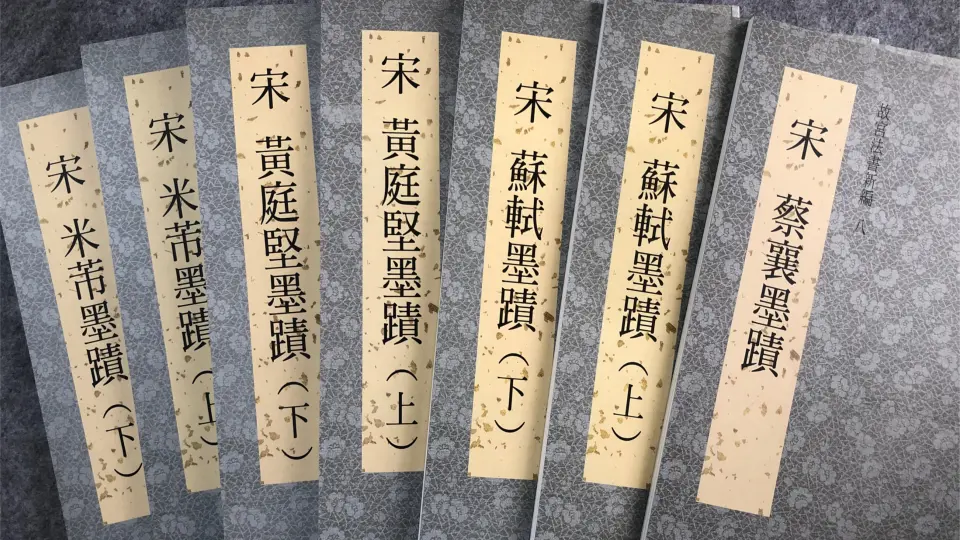 故宮法書新編 八
宋 蔡襄墨蹟
宋 蘇軾墨蹟(上)
宋 蘇軾墨蹟(下)
宋 黃庭堅墨蹟(上)
宋 黃庭堅墨蹟(下)
宋 米芾墨蹟(上)
宋 米芾墨蹟(下)